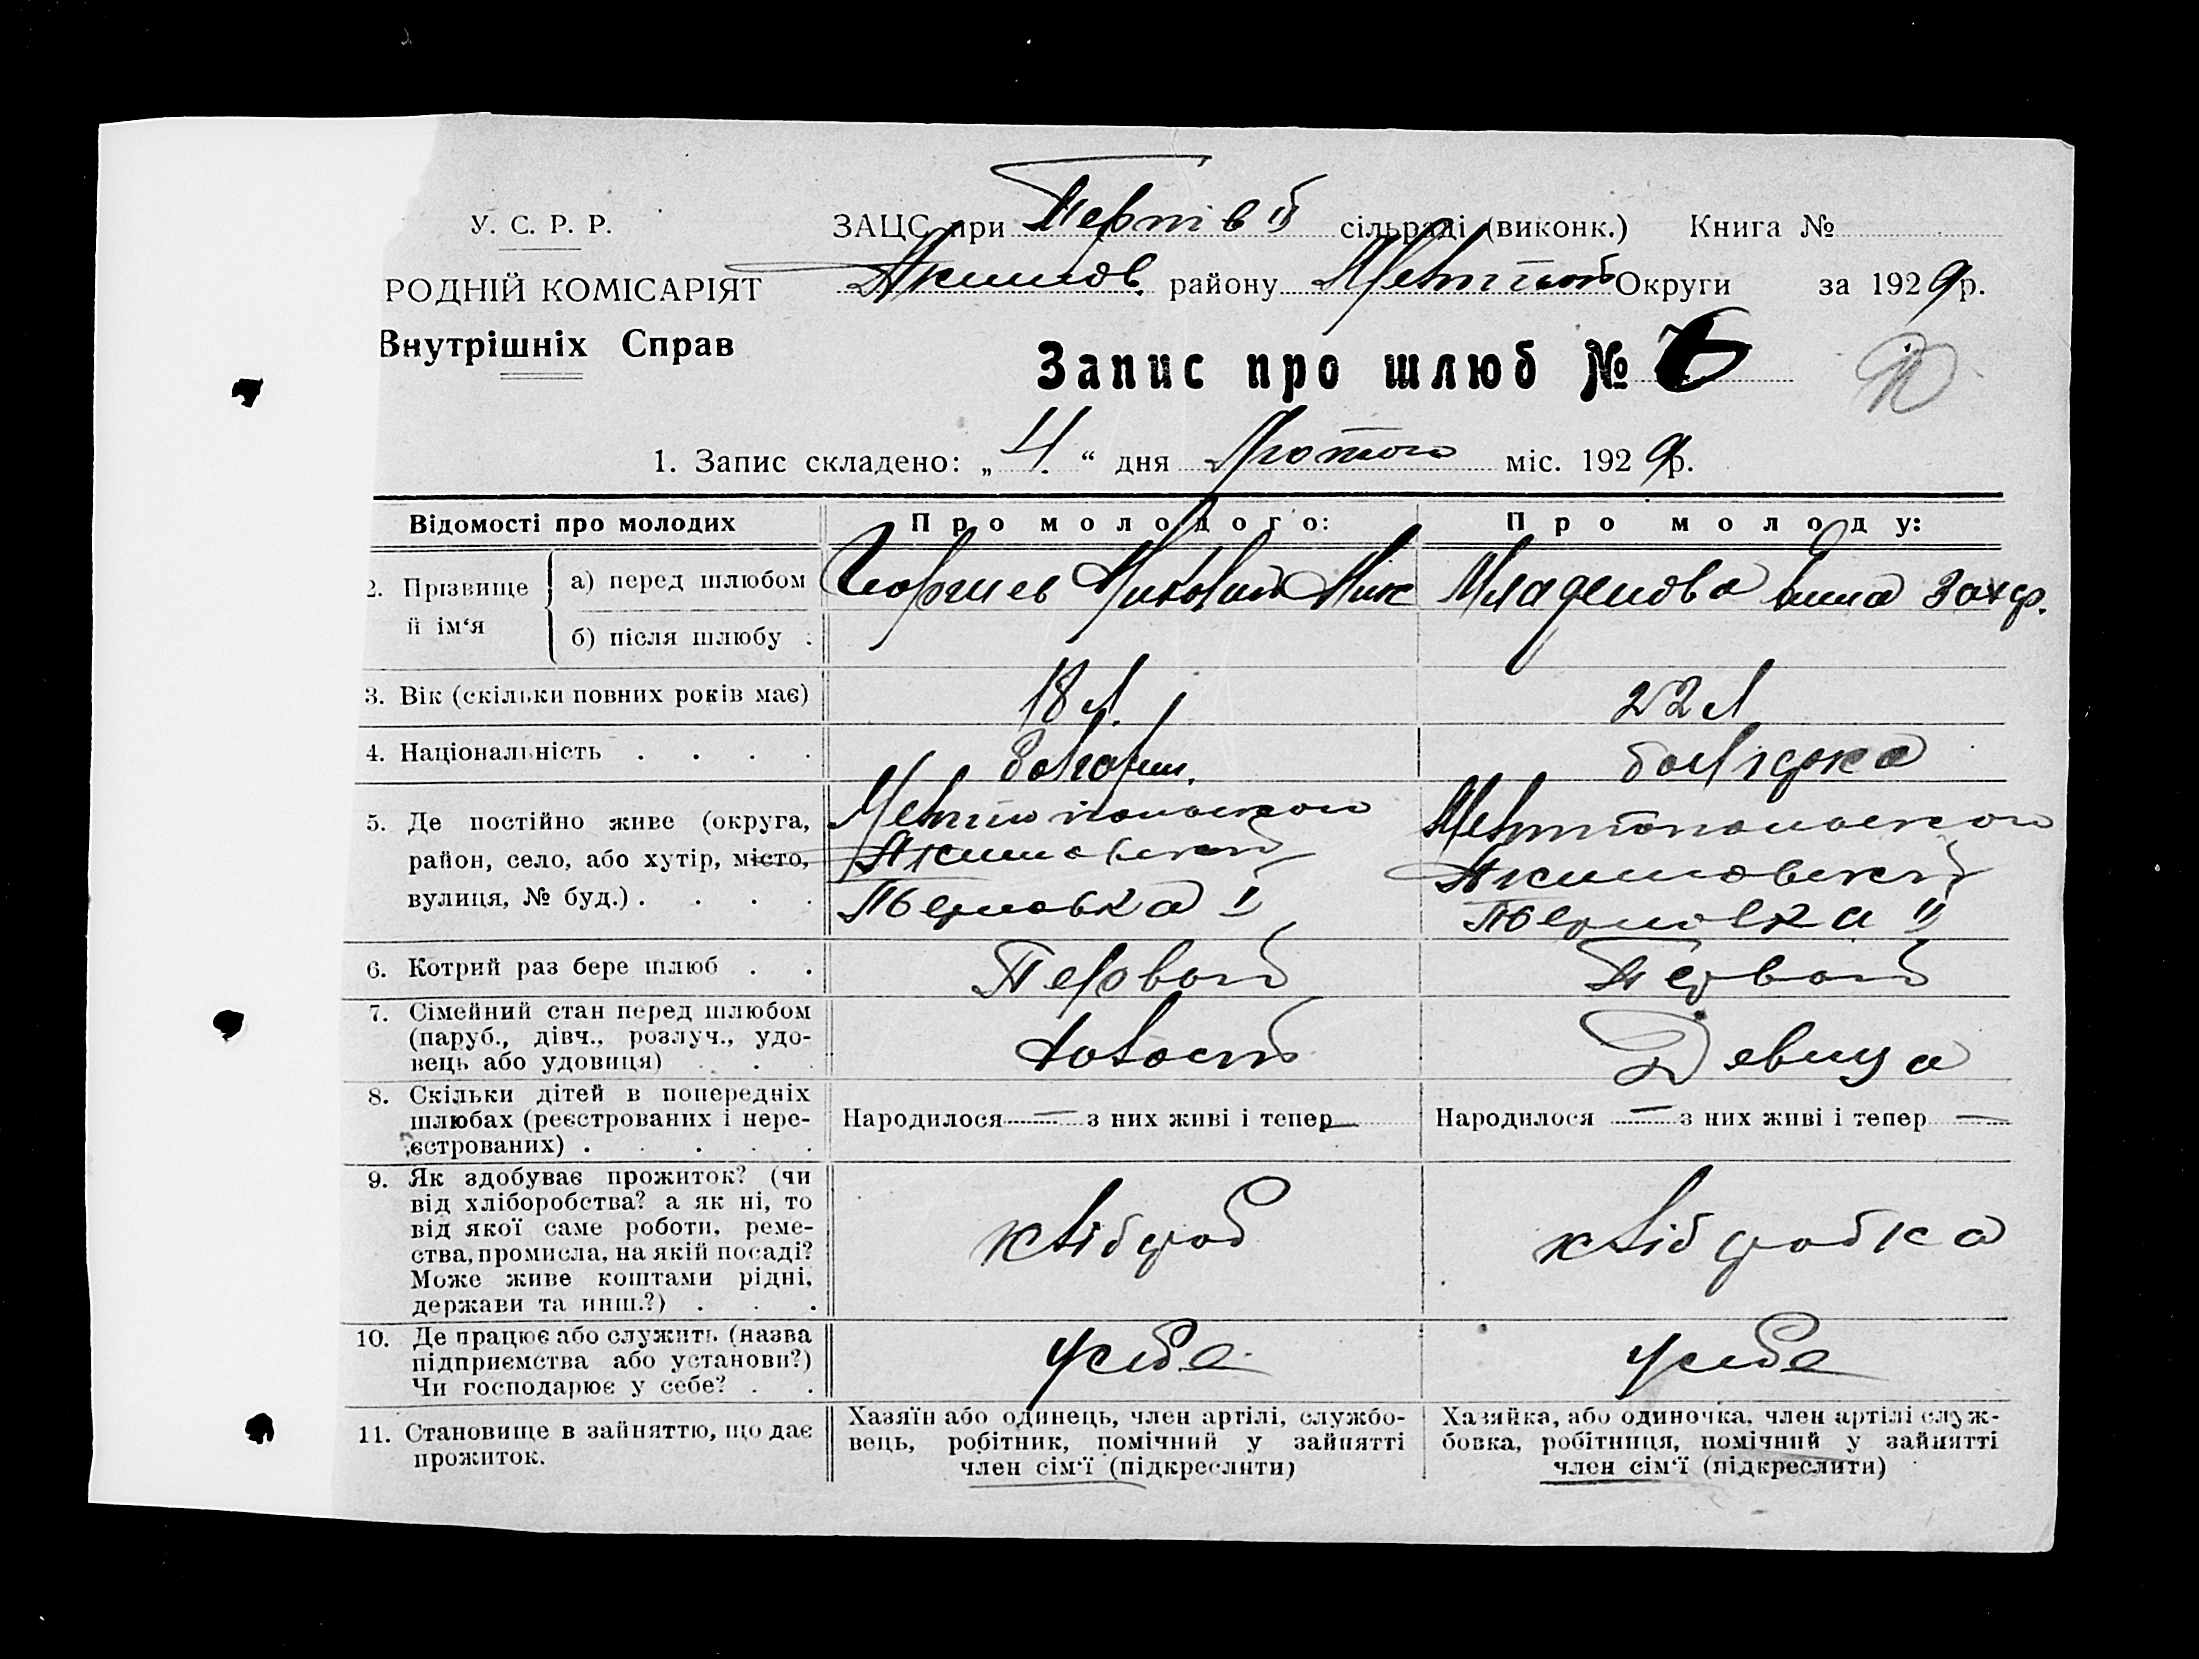 У. С. Р. Р.
ЗАЦС при сільраді (виконк.) Книга №
РОДНІЙ КОМІСАРІЯТ
Акимов. району Округи за 1929 р.
Внутрішніх Справ
Запис про шлюб № 6
1. Запис складено: „ 4 “ дня Лютого міс. 1929 р.
Відомості про молодих Про молодого: Про молоду:
2. Прізвище й ім‘я
а) перед шлюбом Георгиев Ник Младенова Анна Захар.
б) після шлюбу .
3. Вік (скільки повних років має) 18 л. 22 л
4. Національність . . . . болгарин. болгарка
5. Де постійно живе (округа, Мелитопольского Мелитопольского
район, село, або хутір, місто, Акимовской Акимовской
вулиця, № буд.) . . . . II
6. Котрий раз бере шлюб . . Первой Первой
7. Сімейний стан перед шлюбом
(паруб., дівч., розлуч., удо- Холост Девица
вець або удовиця) . . .
8. Скільки дітей в попередніх
шлюбах (реєстрованих і нере- Народилося — з них живі і тепер — Народилося — з них живі і тепер —
єстрованих) . . . . .
9. Як здобуває прожиток? (чи
від хліборобства? а як ні, то
від якої саме роботи, реме- хлібороб хліборобка
ства, промисла, на якій посаді?
Може живе коштами рідні,
держави та инш.?) . . .
10. Де працює або служить (назва
підприємства або установи?) у себе у себе
Чи господарює у себе? . .
11. Становище в зайняттю, що дає прожиток.
Хазяїн або одинець, член артілі, службо-
вець, робітник, помічний у зайнятті
член сім‘ї (підкреслити)
Хазяйка, або одиночка, член артілі служ-
бовка, робітниця, помічний у зайнятті
член сім‘ї (підкреслити)